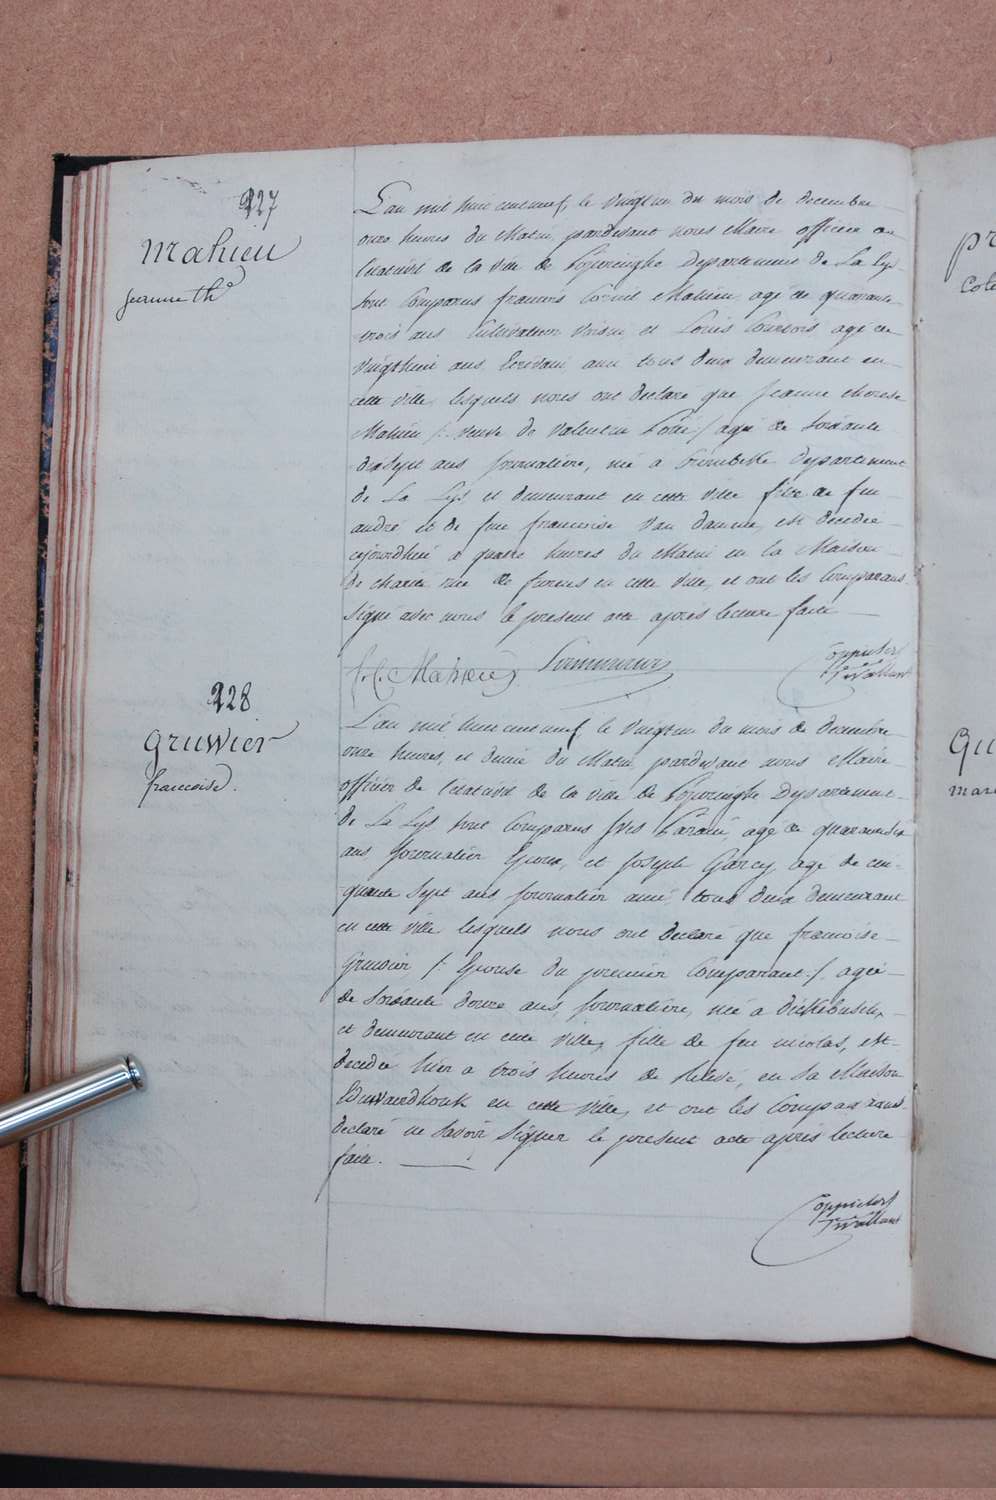 227
Mahieu
jeanne th.e
L'an mil huit cent neuf, le vingt un du mois de decembre
onze heures du Matin, pardevant nous Maire officier de
l'etatcivil de la ville de Poperinghe Departement de La Lys
sont Comparus francois Corneil Mahieu, agé de quarante
trois ans Cultivateur Voisin, et Louis Courtois agé de
vingthuit ans Ecrivain ami tous deux demeurant en
cette ville, lesquels nous ont declaré que jeanne therese
Mahieu /: veuve de Valentin /: agée de soixante
dixsept ans journalière, née à Departement
de La Lys et demeurant en cette ville fille de feu
andré et de feue francoise Van damme, est decedée
cejourdhui à quatre heures du Matin en la Maison
de charité rue de furnes en cette ville, et ont les Comparans
signé avec nous le present acte après lecture faite
f. C. Mahieu
228
Gruwier
francoise.
L'an mil huit cent neuf, le vingt un du mois de decembre
onze heures, et demie du Matin pardevant nous Maire
officier de l'etatcivil de la ville de Poperinghe Departement
de La Lys sont Comparus agé de quarante six
ans, journalier Epoux, et joseph Garcy agé de cin-
quante sept ans journalier ami, tous deux demeurant
en cette ville lesquels nous ont declaré que francoise
Gruwier, /: Epouse du premier Comparant :/ agée
de soixante douze ans, journalière, née à dickebusch,
et demeurant en cette ville, fille de feu nicolas, est
decedée hier à trois heures de relevé, en sa Maison
en cette ville, et ont les Comparans
declaré ne savoir signer le present acte après lecture
faite.